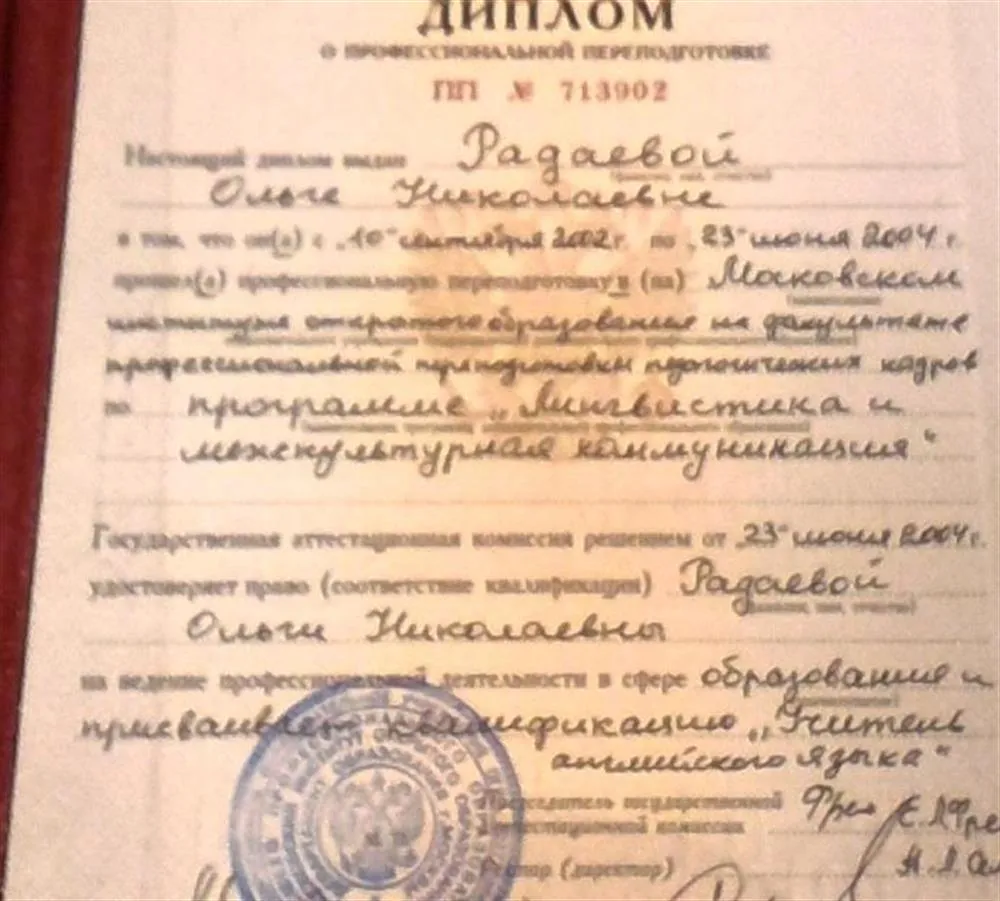 ДИПЛОМ
О ПРОФЕССИОНАЛЬНОЙ ПЕРЕПОДГОТОВКЕ
ПП № 713902
Настоящий диплом выдан Радаевой
Ольге Николаевне
в том, что он(а) с „10" сентября 2002 г. по „23" июня 2004 г.
прошел(а) профессиональную переподготовку в (на) Московском
институте открытого образования на факультете
профессиональной переподготовки педагогических кадров
по программе „Лингвистика и
межкультурная коммуникация"
Государственная аттестационная комиссия решением от „23" июня 2004 г.
удостоверяет право (соответствие квалификации) Радаевой
(фамилия, имя, отчество)
Ольги Николаевны
на ведение профессиональной деятельности в сфере образования и
присваивает квалификацию „Учитель
английского языка"
Председатель государственной
аттестационной комиссии
Ректор (директор)